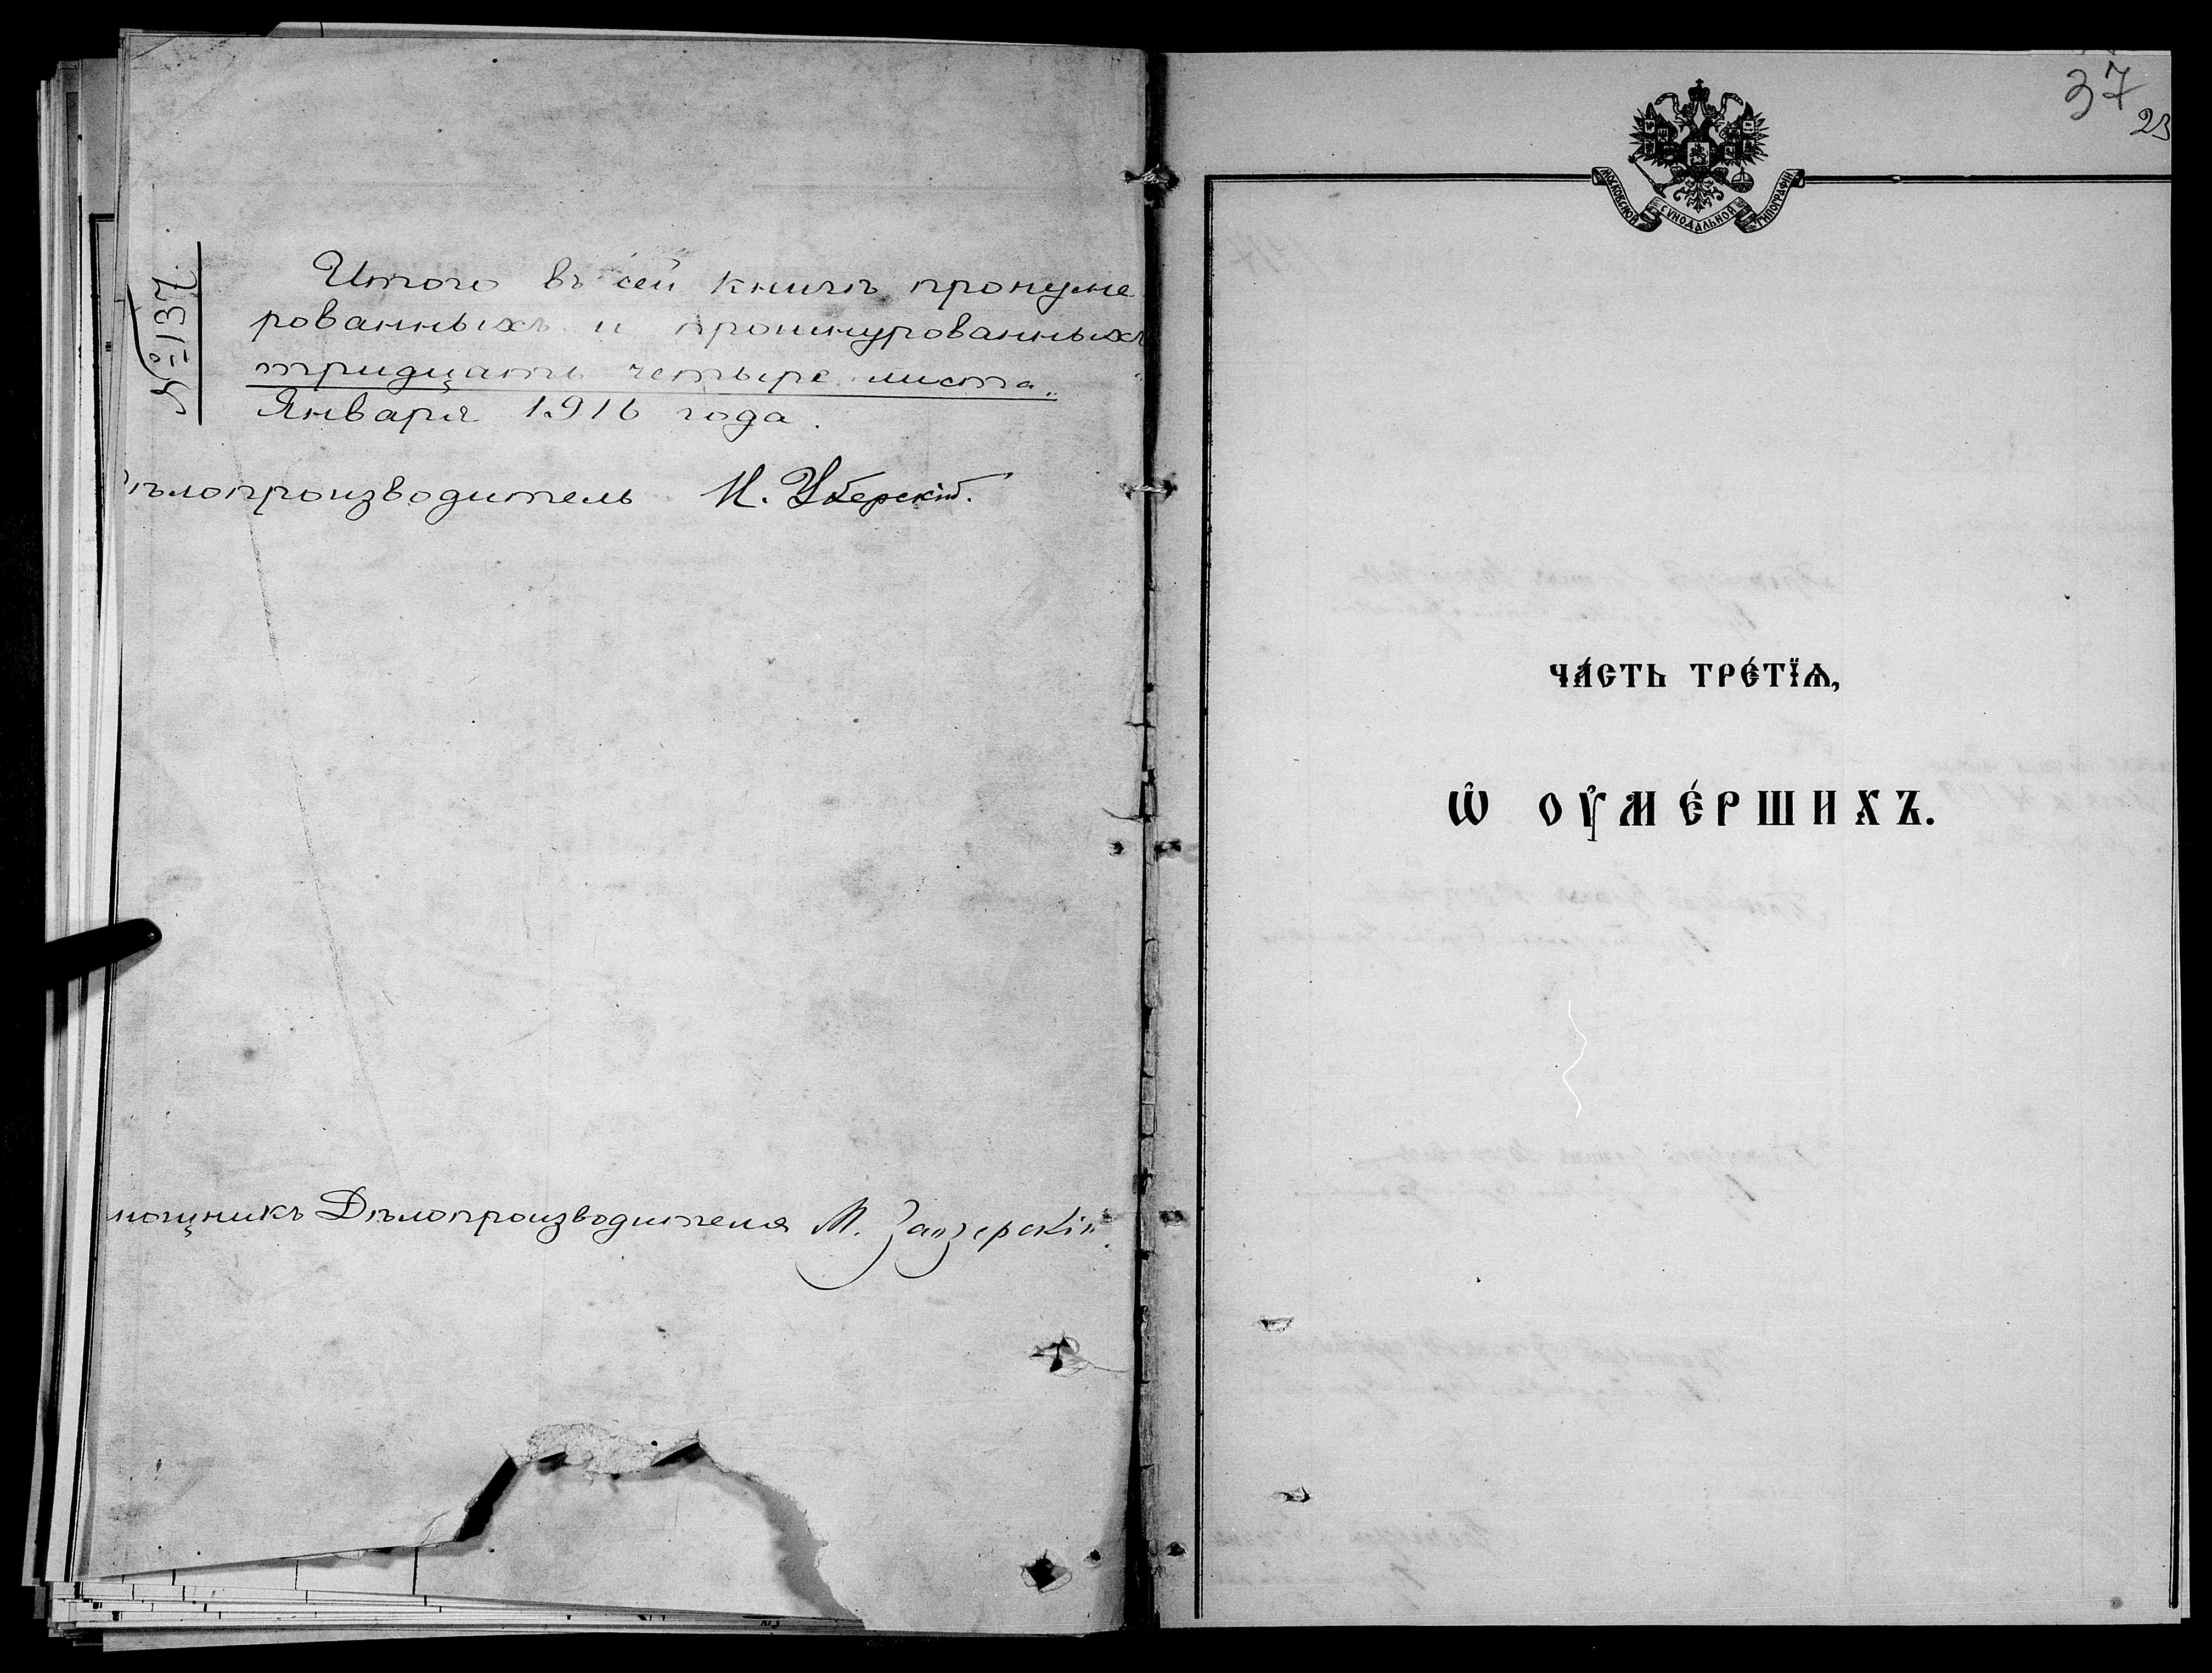 № 137.
Итого въ сей книгѣ пронуме
рованныхъ и прошнурованныхъ
тридцать четыре листа.
Января 1916 года.
ѣлопроизводитель И.
мощникъ Дѣлопроизводителя М. Заозерскій
37
23
МОСКОВСКОЙ СѴНОДАЛЬНОЙ ТИПОГРАФІИ
ЧА́СТЬ ТРЕ́ТЇѦ,
Ѡ҆ ОУ҆МЕ́РШИХЪ.